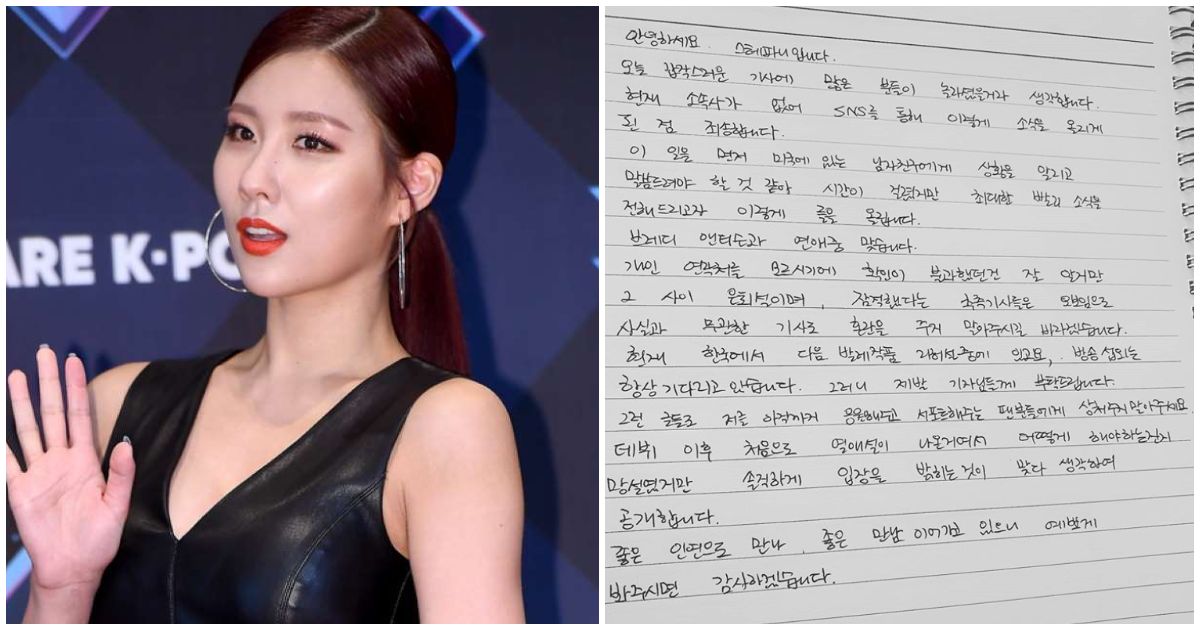 ARE K·PO
안녕하세요. 스테파니입니다.
오늘 갑작스러운 기사에 많은 분들이 놀라셨을거라 생각합니다.
현재 소속사가 없어 SNS를 통해 이렇게 소식을 올리게
된 점 죄송합니다.
이 일을 먼저 미국에 있는 남자친구에게 상황을 알리고
말씀드려야 할 것 같아 시간이 걸렸지만 최대한 빨리 소식을
전해드리고자 이렇게 글을 올립니다.
브레디 앤더슨과 연애중 맞습니다.
개인 연락처를 모르시기에 확인이 불과했던건 잘 알지만
그 사이 은퇴설이며, 잠적했다는 추측기사들은 오보임으로
사실과 무관한 기사로 혼란을 주지 말아주시길 바라겠습니다.
현재 한국에서 다음 발레작품 리허설중에 있고요, 방송 섭외는
항상 기다리고 있습니다. 그러니 제발 기자님들께 부탁드립니다.
그런 글들로 저를 아직까지 응원해주고 서포트해주는 팬분들에게 상처주지말아주세요
데뷔 이후 처음으로 열애설이 나온거여서 어떻게 해야하는건지
망설였지만 솔직하게 입장을 밝히는것이 맞다 생각하여
공개합니다.
좋은 인연으로 만나, 좋은 만남 이어가고 있으니 예쁘게
봐주시면 감사하겠습니다.